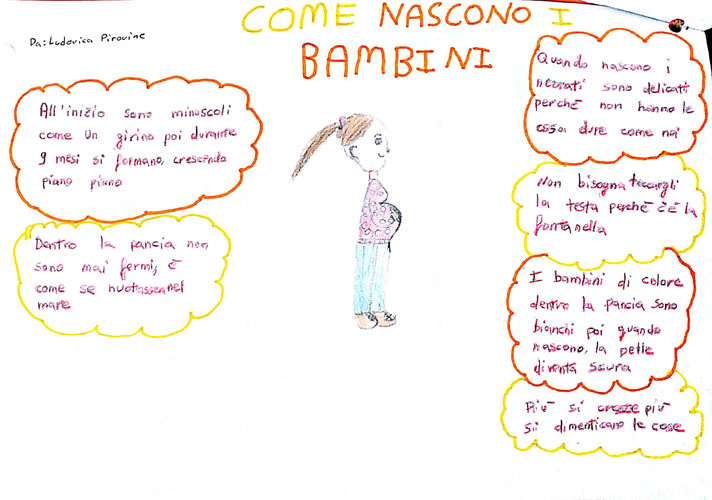 COME NASCONO I
BAMBINI
Da: Ludovica Pirovine
All'inizio sono minuscoli
come un girino poi durante
9 mesi si formano, crescendo
piano piano
Dentro la pancia non
sono mai fermi, è
come se nuotassero nel
mare
Quando nascono i
neonati sono delicati
perché non hanno le
ossa dure come noi
Non bisogna toccargli
la testa perché c'è la
fontanella
I bambini di colore
dentro la pancia sono
bianchi poi quando
nascono, la pelle
diventa scura
Più si cresce più
si dimenticano le cose